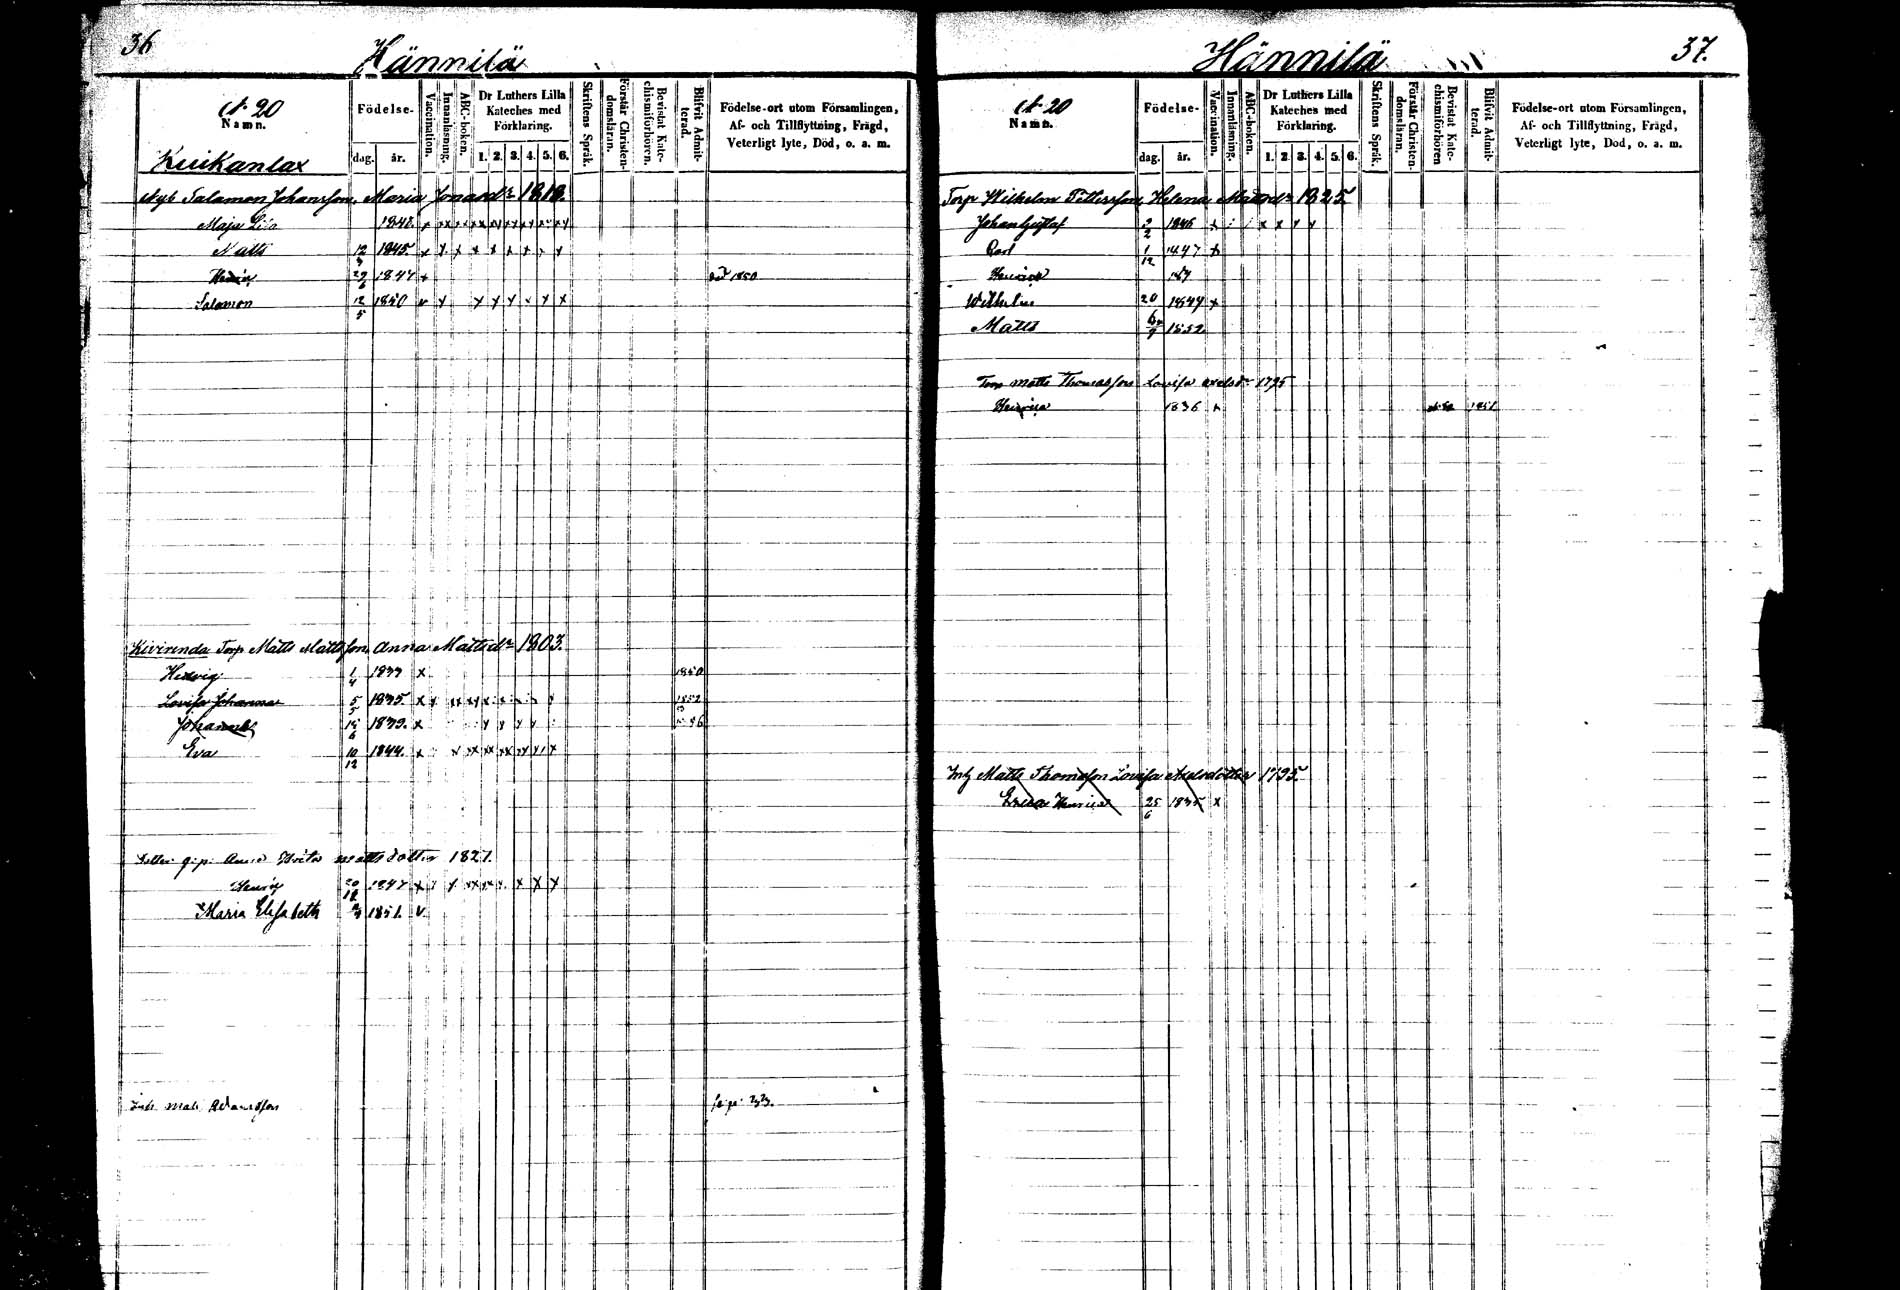 36
Hännilä
N 20
Namn.
Födelse-
dag. år.
Vaccination.
Innanläsning.
ABC-boken.
Dr Luthers Lilla Kateches med Förklaring.
1. 2. 3. 4. 5. 6.
Skriftens Språk.
Förstår Christendomsläran.
Bevistat Katechismiförhören.
Blifvit Admitterad.
Födelse-ort utom Församlingen,
Af- och Tillflyttning, Frägd,
Veterligt lyte, Död, o. a. m.
Kuikanlax
Nyb Salamon Johansson, Maria Jonasdr 1818.
Maja Lisa 1842. x
Matts 12/3 1845. x x x x x x x x x
Henric 29/6 1847 x död 1850
Salamon 12/5 1850 v x x x x x x
Kivirinda Torp Matts Mattsson, Anna Mattsdr 1803.
Hedvig 1/4 1833 x 1850
Lovisa Johanna 5/5 1835. x x 1852
Johannes 15/6 1839. x x x x x
Eva 10/12 1844. x
Anna Brita Mattsdotter 1821.
Henric 20/12 1847 x
Maria Elisabeth 1851. v
Inh. Matts Adamsson 33.
37.
Hännilä
N 20
Namn.
Födelse-
dag. år.
Vaccination.
Innanläsning.
ABC-boken.
Dr Luthers Lilla Kateches med Förklaring.
1. 2. 3. 4. 5. 6.
Skriftens Språk.
Förstår Christendomsläran.
Bevistat Katechismiförhören
Blifvit Admitterad.
Födelse-ort utom Församlingen,
Af- och Tillflyttning, Frägd,
Veterligt lyte, Dod, o. a. m.
Torp Wilhelm Pettersson, Helena Mattsdr 1825.
Johan Gustaf 2/2 1846 x x x x x
Carl 1/12 1847 x
Henrick
Wilhelm 20 1849 x
Matts 1852
Torp Matts Thomasson Lovisa Axelsdr 1795
Henrica 1836 x 1851
Inh Matts Thomasson Lovisa Axelsdotter 1795.
Henrica 25/6 1835 x